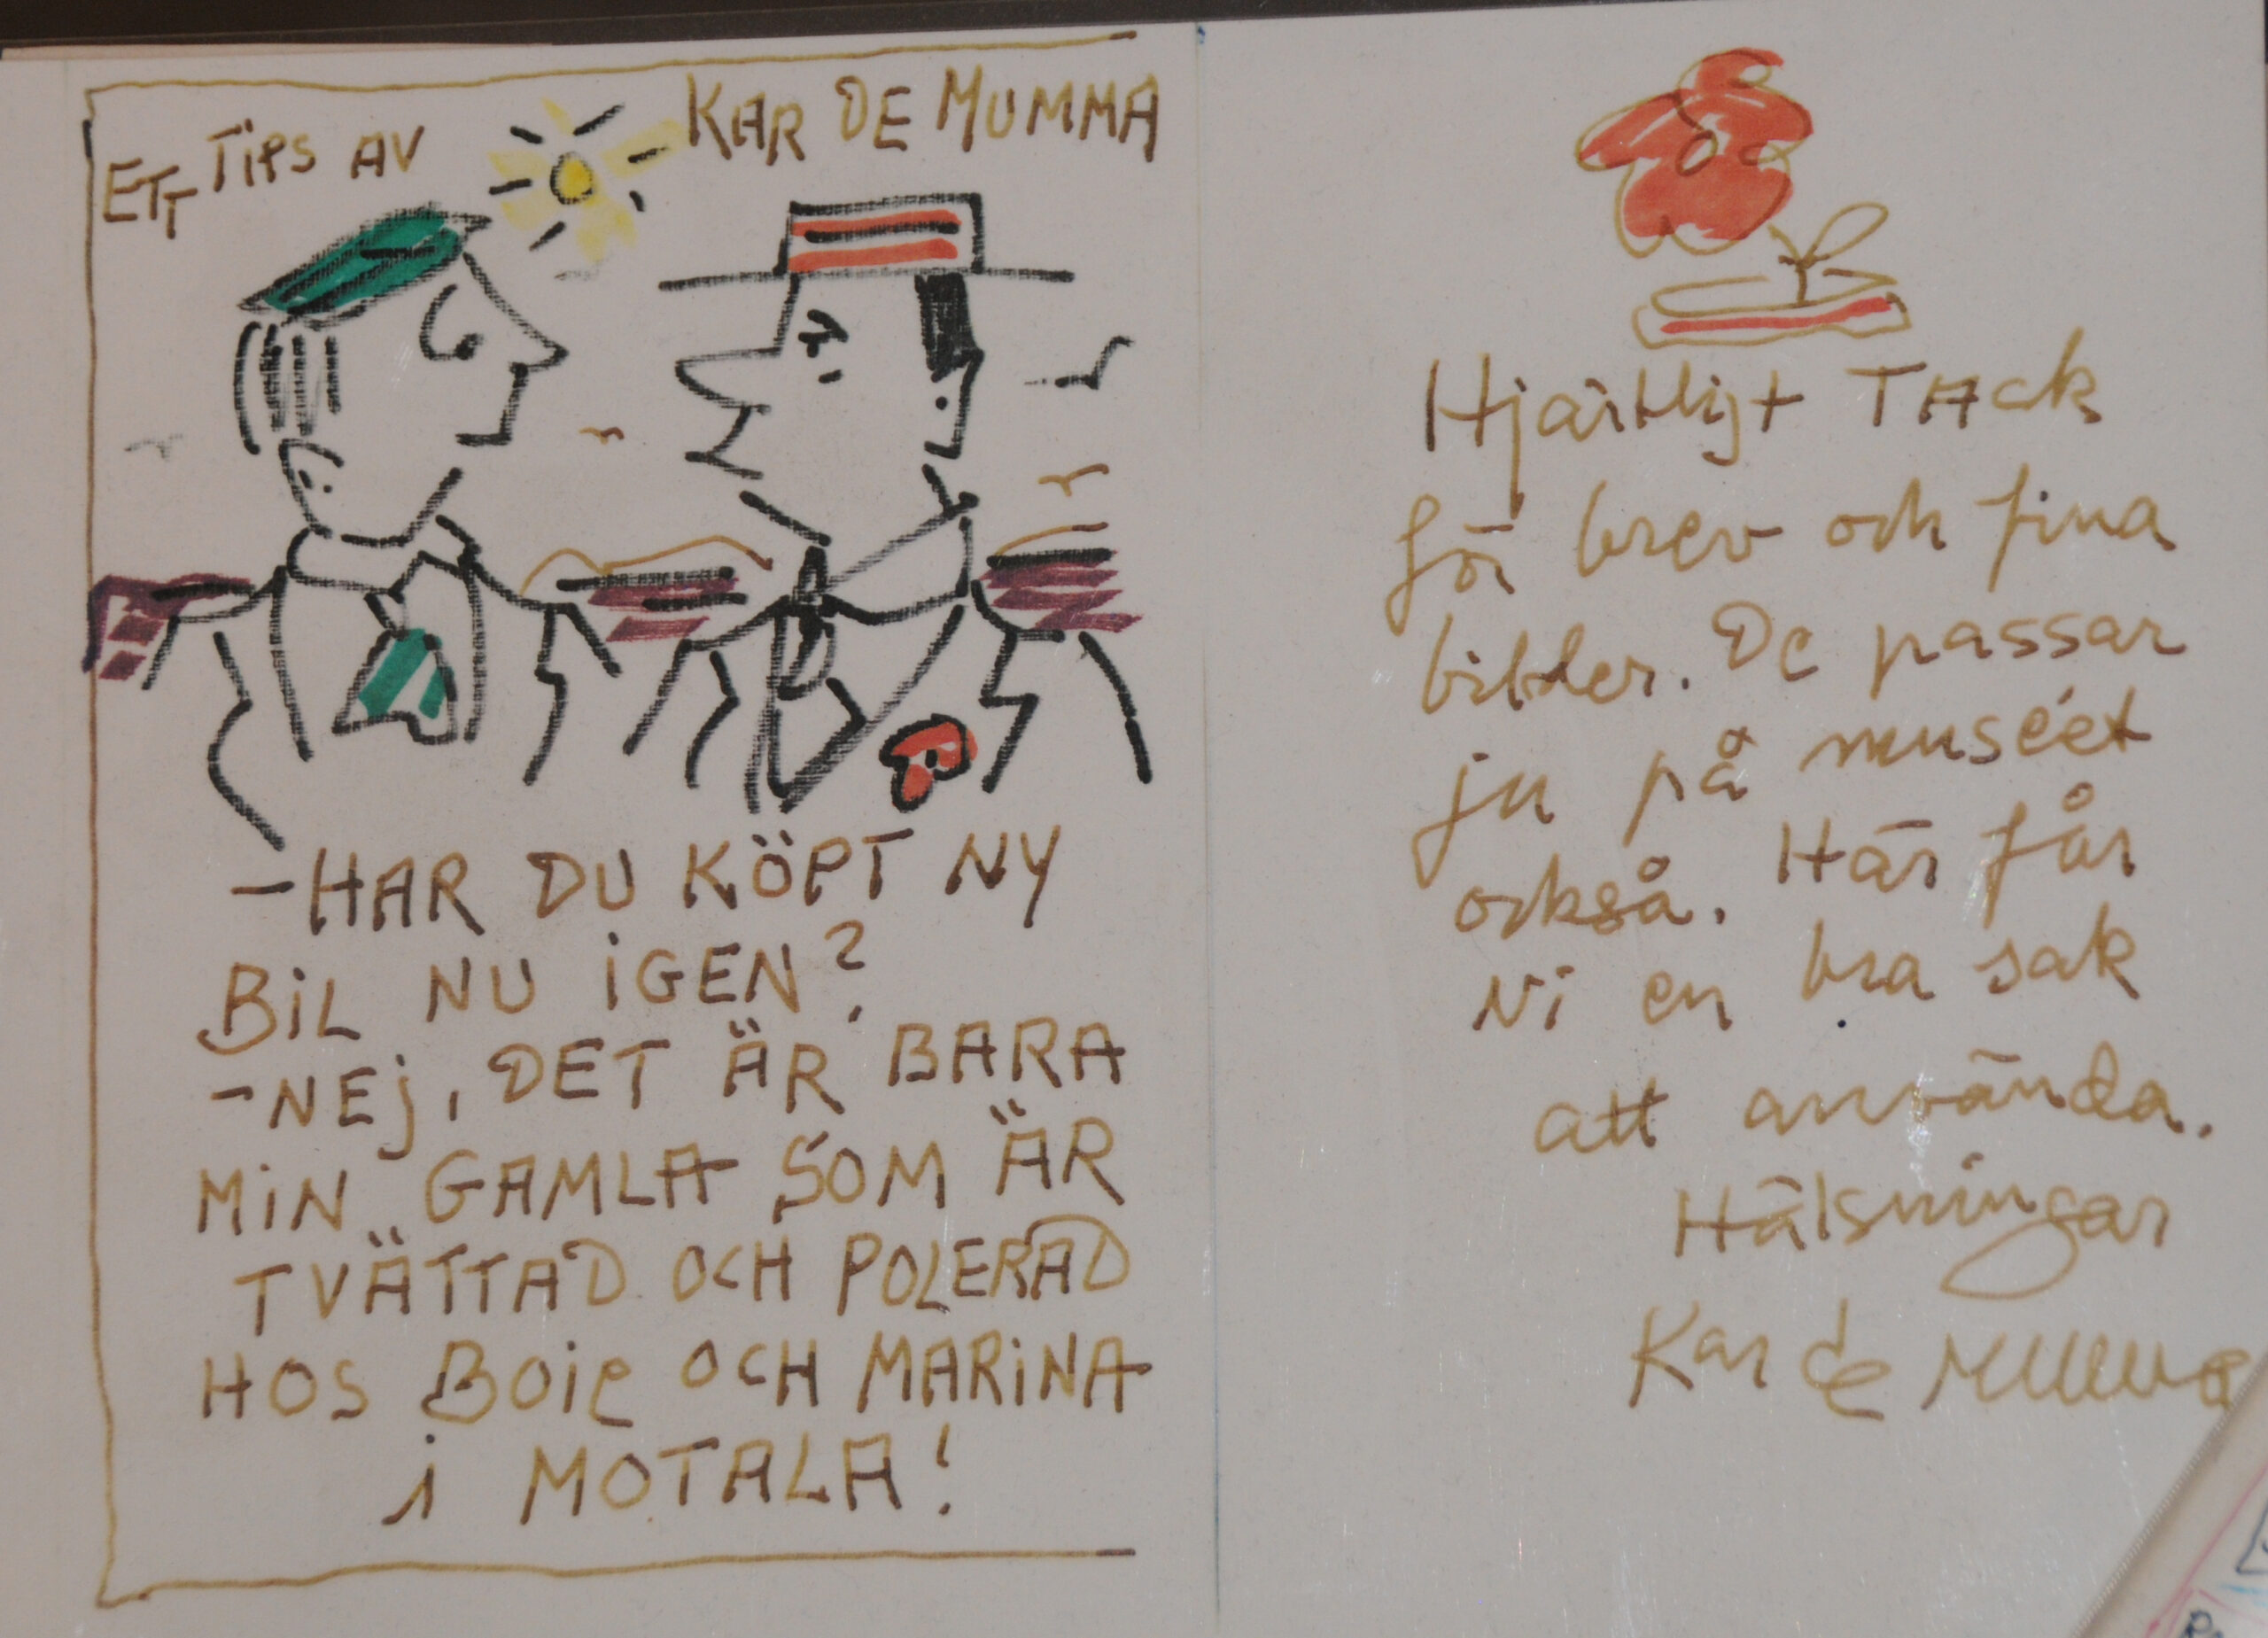 ETT TiPS AV KAR DE MUMMA
-HAR DU KÖPT NY
BiL NU iGEN?
-NEj, DET ÄR BARA
MiN GAMLA SOM ÄR
TVÄTTAD OCH POLERAD
HOS BOiE OCH MARiNA
i MOTALA!
Hjärtligt TAck
för brev och fina
bilder. De passar
ju på muséet
också. Här får
Ni en bra sak
att använda.
Hälsningar
Kar de Mumma